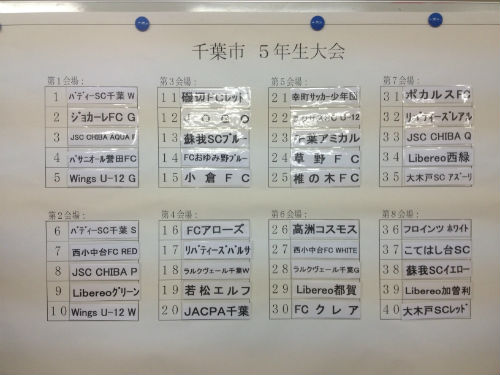 千葉市 5年生大会
第1会場:
1 バディーSC千葉 W
2 ジョカーレFC G
3 JSC CHIBA AQUA
4 パサニオール誉田FC
5 Wings U-12 G
第3会場:
11 磯辺FCレッド
12
13 蘇我SCブルー
14 FCおゆみ野ブルー
15 小倉FC
第5会場:
21 幸町サッカー少年団
22 U-12
23 千葉アミカル
24 草野FC
25 椎の木FC
第7会場:
31 ボカルスFC
32 リバティーズレアル
33 JSC CHIBA Q
34 Libereo西緑
35 大木戸SC アズーリ
第2会場:
6 バディーSC千葉 S
7 西小中台FC RED
8 JSC CHIBA P
9 Libereoグリーン
10 Wings U-12 W
第4会場:
16 FCアローズ
17 リバティーズバルサ
18 ラルクヴェール千葉W
19 若松エルフ
20 JACPA千葉
第6会場:
26 高洲コスモス
27 西小中台FC WHITE
28 ラルクヴェール千葉G
29 Libereo都賀
30 FCクレア
第8会場:
36 フロインツ ホワイト
37 こてはし台SC
38 蘇我SCイエロー
39 Libereo加曽利
40 大木戸SCレッド